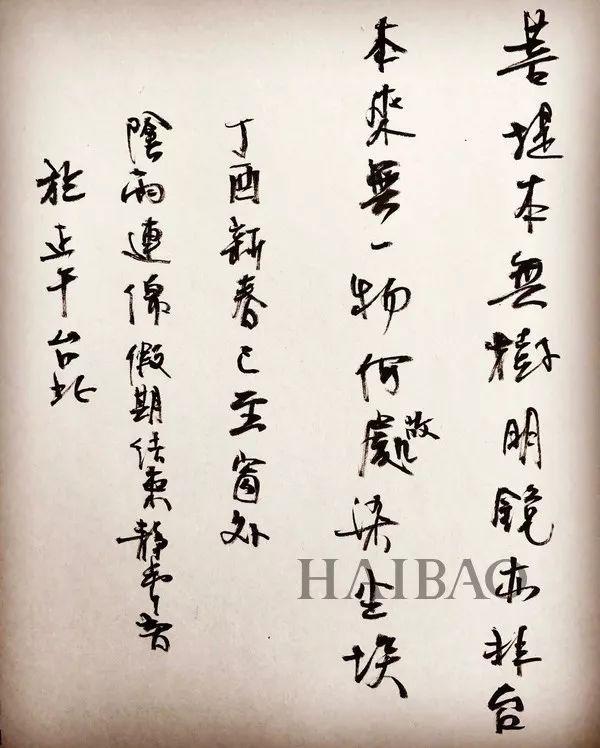 菩堤本無樹明鏡亦非台
本來無一物何處染尘埃
丁酉新春已至窗外
陰雨連綿假期結束靜
於正午台北
HAIBAO